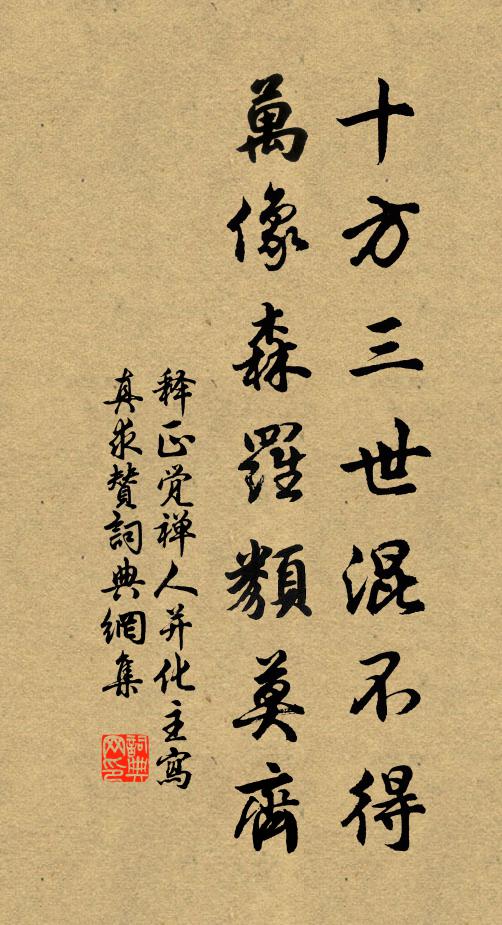 十方三世混不得
萬像森羅類莫齊
释正觉禅人并化主寫
真求贊詞典網集
詞典网印